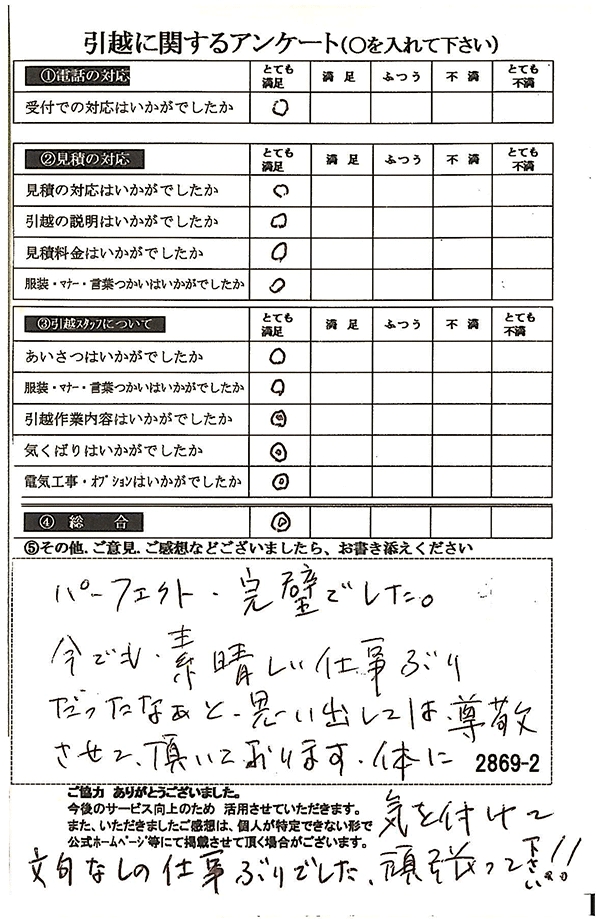 引越に関するアンケート(○を入れて下さい)
①電話の対応 とても満足 満足 ふつう 不満 とても不満
受付での対応はいかがでしたか ○
②見積の対応 とても満足 満足 ふつう 不満 とても不満
見積の対応はいかがでしたか ○
引越の説明はいかがでしたか ○
見積料金はいかがでしたか ○
服装・マナー・言葉つかいはいかがでしたか ○
③引越スタッフについて とても満足 満足 ふつう 不満 とても不満
あいさつはいかがでしたか ○
服装・マナー・言葉つかいはいかがでしたか ○
引越作業内容はいかがでしたか ◎
気くばりはいかがでしたか ◎
電気工事・オプションはいかがでしたか ◎
④ 総 合 ◎
⑤その他.ご意見.ご感想などございましたら、お書き添えください
パーフェクト・完璧でした。
今でも・素晴しい仕事ぶり
だったなぁと・思い出しては・尊敬
させて、頂いております・体に
2869-2
ご協力 ありがとうございました。
今後のサービス向上のため 活用させていただきます。
また、いただきましたご感想は、個人が特定できない形で
公式ホームページ等にて掲載させて頂く場合がございます。
気を付けて
文句なしの仕事ぶりでした、頑張って下さい。!!